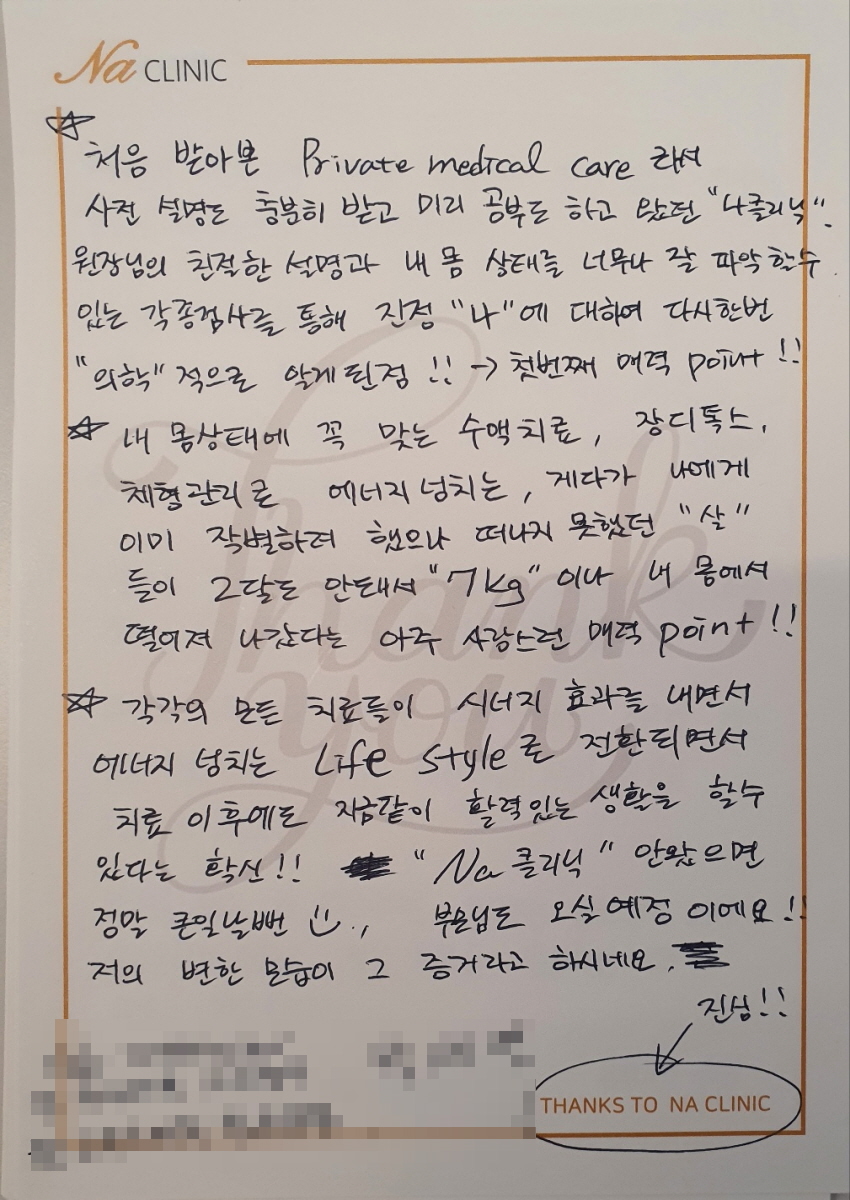 Na CLINIC
☆
처음 받아본 Private medical care 라서
사전 설명도 충분히 받고 미리 공부도 하고 왔던 "나클리닉".
원장님의 친절한 설명과 내 몸 상태를 너무나 잘 파악할수
있는 각종검사를 통해 진정 "나"에 대하여 다시한번
"의학"적으로 알게된점!! → 첫번째 매력 point!!
☆ 내 몸상태에 꼭 맞는 수액치료, 장디톡스,
체형관리로 에너지 넘치는, 게다가 나에게
이미 작별하려 했으나 떠나지 못했던 "살"
들이 2달도 안돼서 "7kg" 이나 내 몸에서
떨어져 나갔다는 아주 사랑스런 매력 point!!
☆ 각각의 모든 치료들이 시너지 효과를 내면서
에너지 넘치는 Life style로 전환되면서
치료 이후에도 지금같이 활력있는 생활을 할수
있다는 확신!! "Na 클리닉" 안왔으면
정말 큰일날뻔 .., 부모님도 오실예정 이에요!!
저의 변한 모습이 그 증거라고 하시네요.
진심!!
THANKS TO NA CLINIC
Thank
you